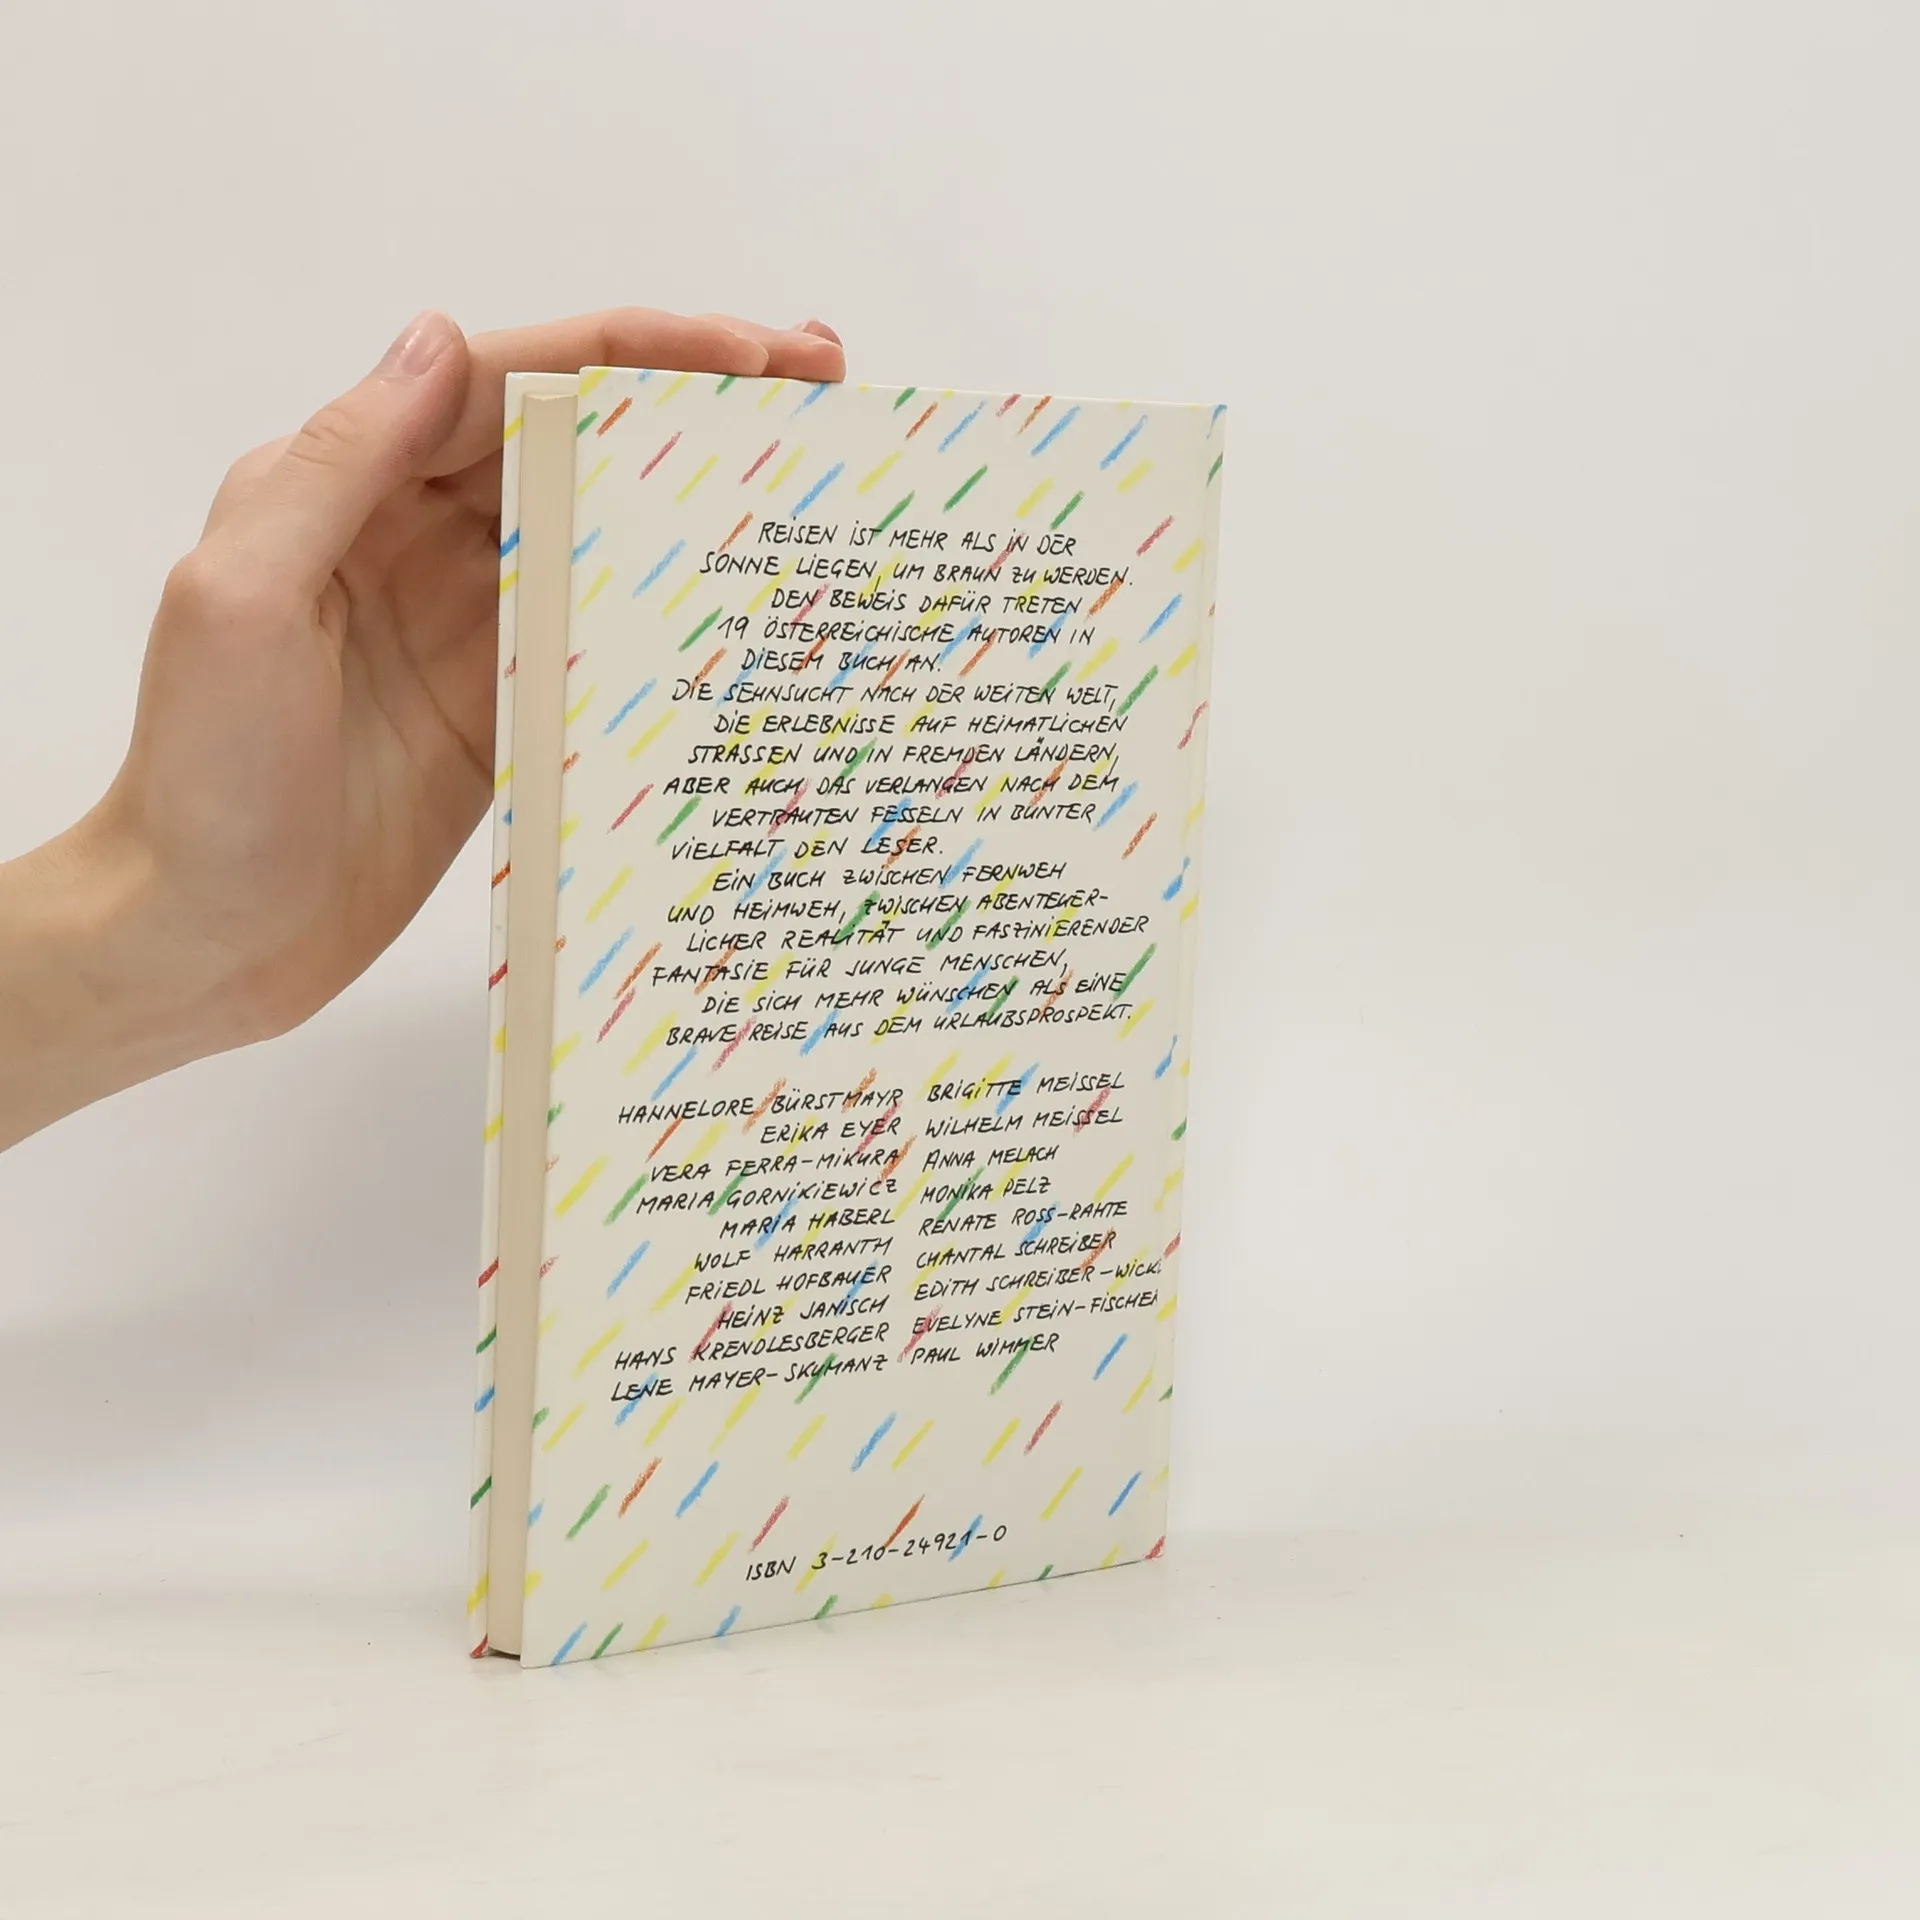 REISEN IST MEHR ALS IN DER
SONNE LIEGEN, UM BRAUN ZU WERDEN.
DEN BEWEIS DAFÜR TRETEN
19 ÖSTERREICHISCHE AUTOREN IN
DIESEM BUCH AN.
DIE SEHNSUCHT NACH DER WEITEN WELT,
DIE ERLEBNISSE AUF HEIMATLICHEN
STRASSEN UND IN FREMDEN LÄNDERN,
ABER AUCH DAS VERLANGEN NACH DEM
VERTRAUTEN FESSELN IN BUNTER
VIELFALT DEN LESER.
EIN BUCH ZWISCHEN FERNWEH
UND HEIMWEH, ZWISCHEN ABENTEUER-
LICHER REALITÄT UND FASZINIERENDER
FANTASIE FÜR JUNGE MENSCHEN,
DIE SICH MEHR WÜNSCHEN ALS EINE
BRAVE REISE AUS DEM URLAUBSPROSPEKT.
HANNELORE BÜRSTMAYR BRIGITTE MEISSEL
ERIKA EYER WILHELM MEISSEL
VERA FERRA-MIKURA ANNA MELACH
MARIA GORNIKIEWICZ MONIKA PELZ
MARIA HABERL RENATE ROSS-RAHTE
WOLF HARRANTH CHANTAL SCHREIBER
FRIEDL HOFBAUER EDITH SCHREIBER-WICK
HEINZ JANISCH EVELYNE STEIN-FISCHER
HANS KRENDLESBERGER PAUL WIMMER
LENE MAYER-SKUMANZ
ISBN 3-210-24921-0